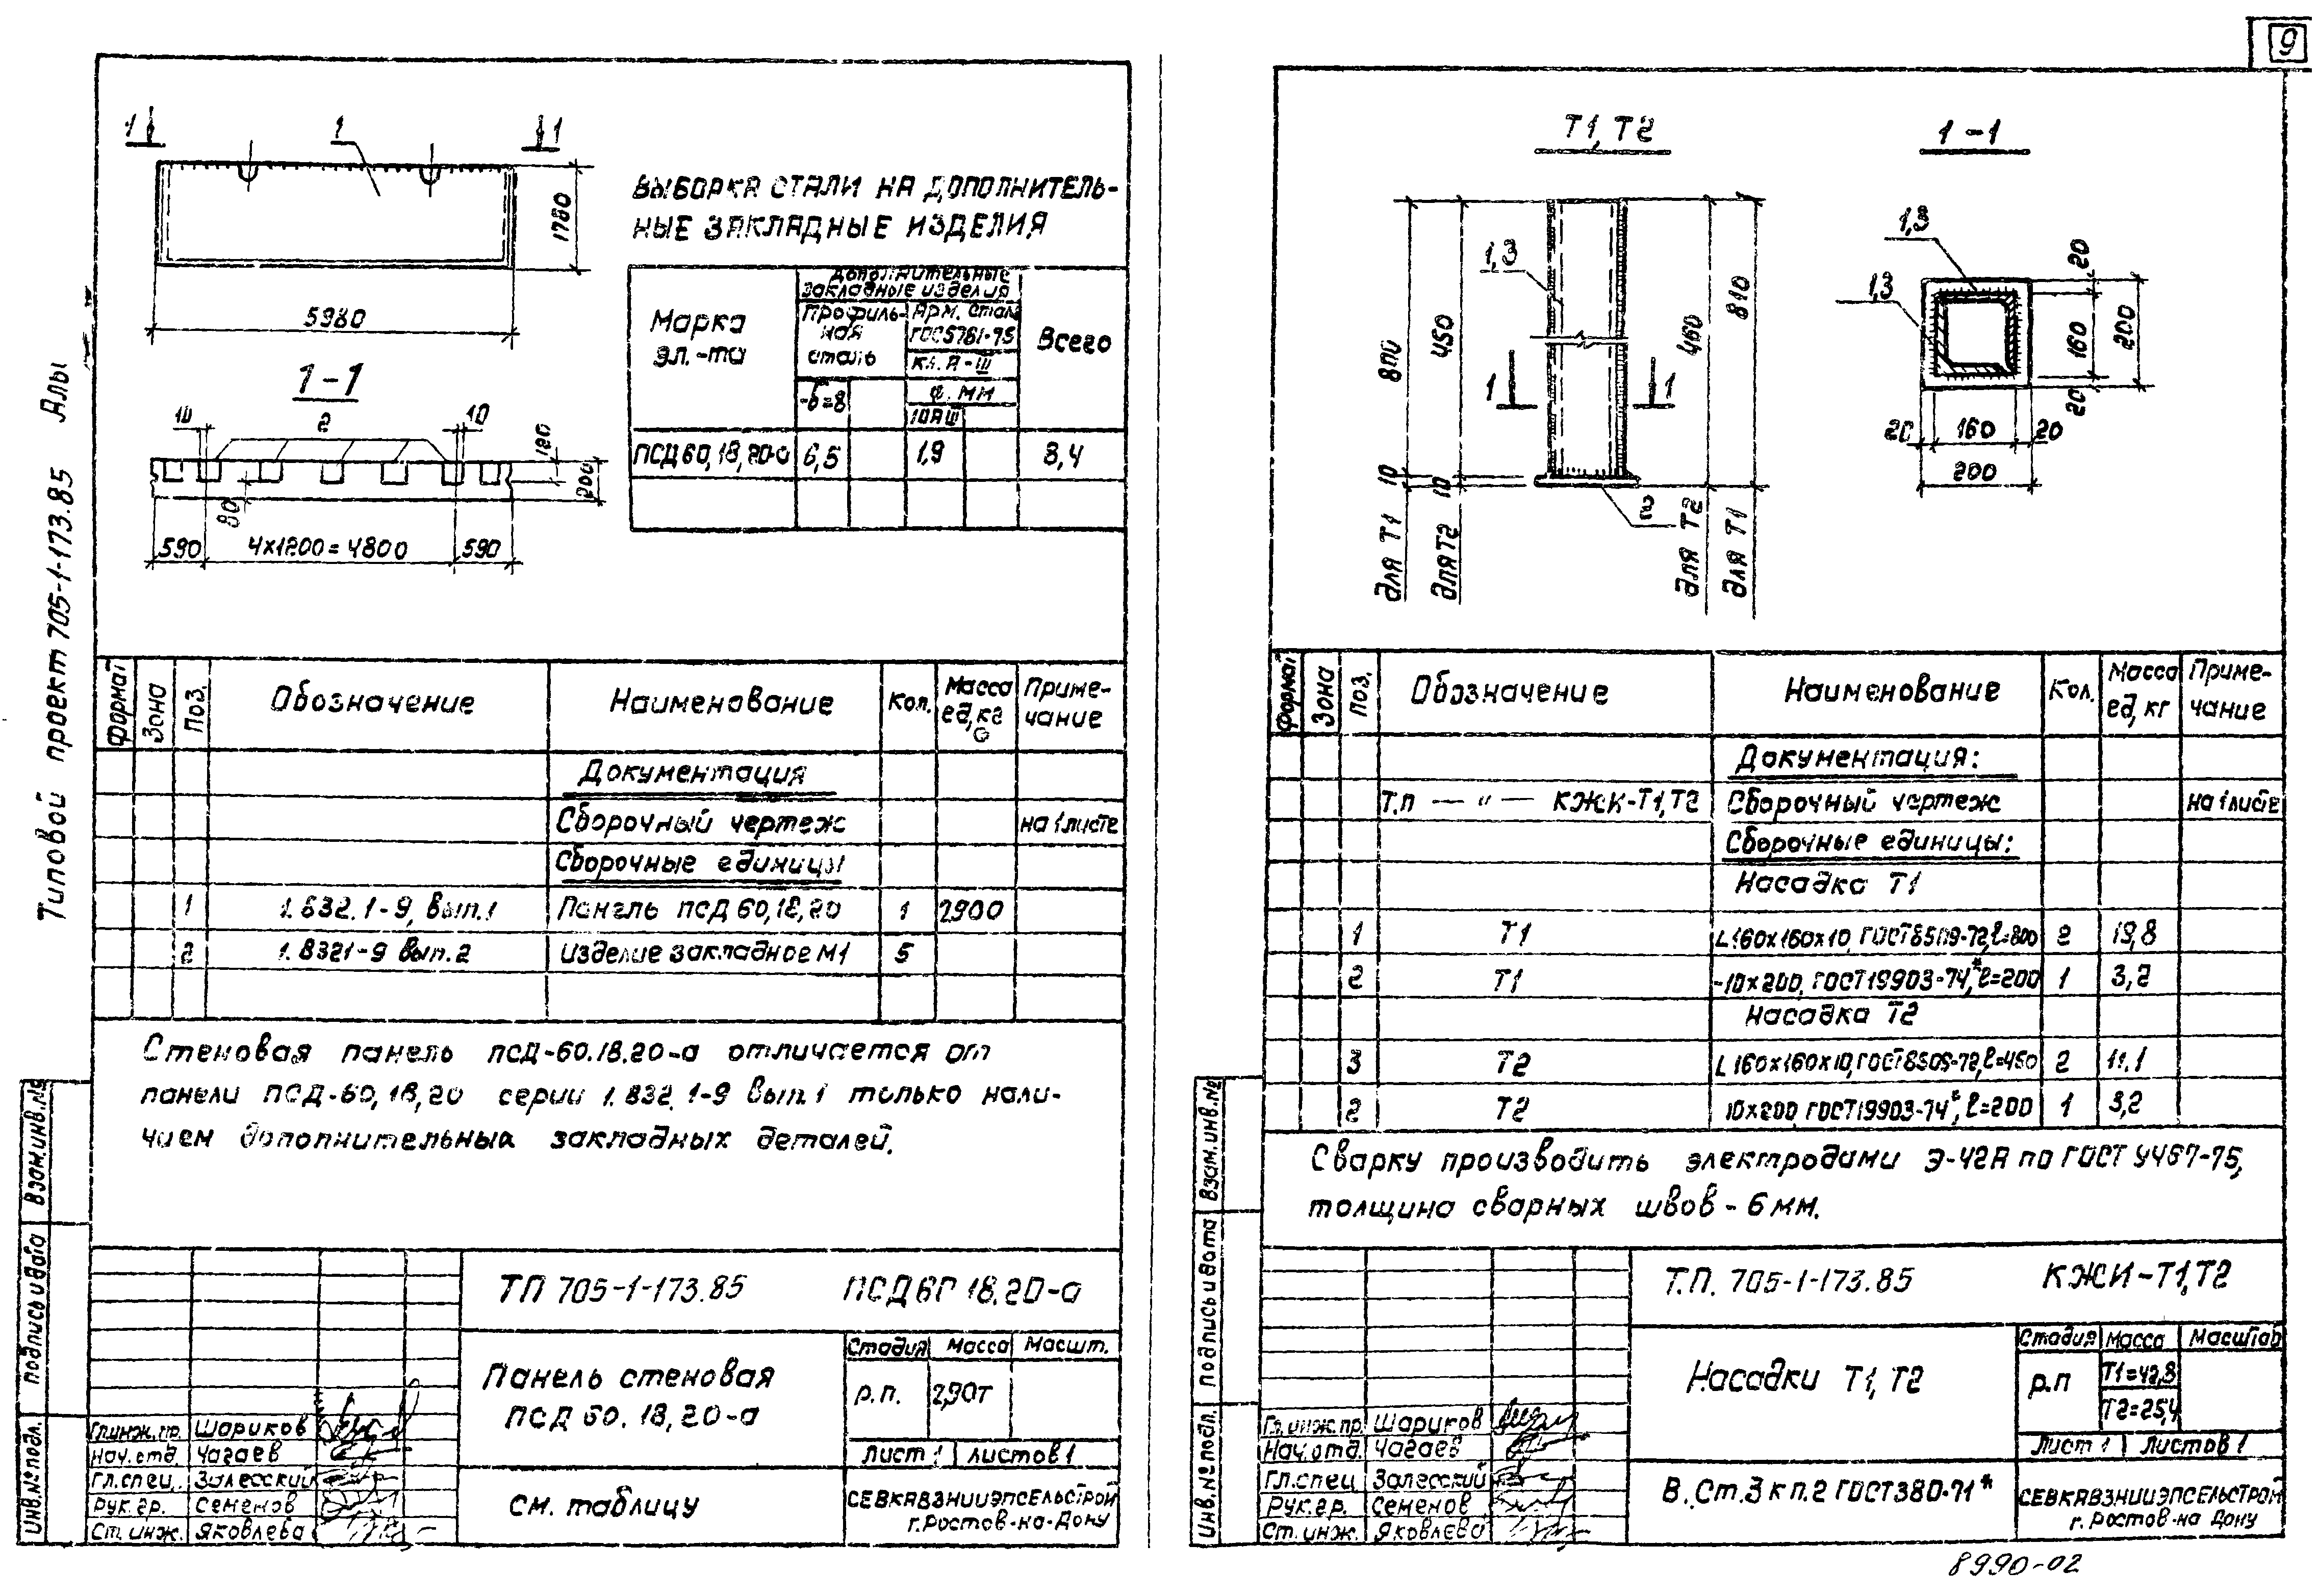 9
Типовой проект 705-1-173.85
1
1
1
1780
5980
1-1
10
2
10
120
200
80
590
4х1200=4800
590
ВЫБОРКА СТАЛИ НА ДОПОЛНИТЕЛЬ-
НЫЕ ЗАКЛАДНЫЕ ИЗДЕЛИЯ
Марка
эл.-та
Дополнительные
закладные изделия
Профиль-
ная
сталь
Арм. стал
ГОС5781-75
Кл. А-III
-δ=8
Ф. мм
10АIII
Всего
ПСД60,18,20-а
6,5
1,9
8,4
Формат
Зона
Поз.
Обозначение
Наименование
Кол.
Масса
ед,кг
Приме-
чание
Документация
Сборочный чертеж
на 1листе
Сборочные единицы
1
1.832.1-9, вып.1
Панель ПСД 60,18,20
1
2900
2
1.8321-9 вып.2
Изделие закладное М1
5
Стеновая панель ПСД-60.18.20-а отличается от
панели ПСД-60,18,20 серии 1.832.1-9 вып.1 только нали-
чием дополнительных закладных деталей.
Взам.инв.№
Подпись и дата
Инв.№подл.
ТП 705-1-173.85
ПСД60 18.20-а
Панель стеновая
ПСД 60. 18, 20-а
Стадия
Масса
Масшт.
р.п.
2,90т
Лист 1
Листов 1
Гл.инж.пр. Шариков
Нач.отд Чагаев
Гл.спец. Залесский
Рук.гр. Семенов
Ст.инж. Яковлева
См. таблицу
СЕВКАВЗНИИЭПСЕЛЬСТРОЙ
г.Ростов-на-Дону
Т1, Т2
1-1
800
450
1,3
460
810
1
1
10
10
2
для Т1
для Т2
для Т2
для Т1
1,3
1,3
20
160
200
20
20
160
20
200
Формат
Зона
Поз.
Обозначение
Наименование
Кол.
Масса
ед, кг
Приме-
чание
Документация:
Т.п — " — КЖИ-Т1,Т2
Сборочный чертеж
на 1листе
Сборочные единицы:
Насадка Т1
1
Т1
L160х160х10, ГОСТ8509-72,ℓ=800
2
19,8
2
Т1
-10х200, ГОСТ19903-74*,ℓ=200
1
3,2
Насадка Т2
3
Т2
L160х160х10,ГОСТ8509-72,ℓ=450
2
11,1
2
Т2
10х200 ГОСТ19903-74*, ℓ=200
1
3,2
Сварку производить электродами Э-42А по ГОСТ 9467-75,
толщина сварных швов - 6мм.
Взам.инв.№
Подпись и дата
Инв.№подл.
Т.П. 705-1-173.85
КЖИ-Т1,Т2
Насадки Т1, Т2
Стадия
Масса
Масштаб
р.п
Т1=42,8
Т2=25,4
Лист 1
Листов 1
Гл.инж.пр. Шариков
Нач.отд. Чагаев
Гл.спец Залесский
Рук.гр. Семенов
Ст.инж. Яковлева
В.Ст.3кп.2 ГОСТ380-71*
СЕВКАВЗНИИЭПСЕЛЬСТРОЙ
г. Ростов-на Дону
8990-02